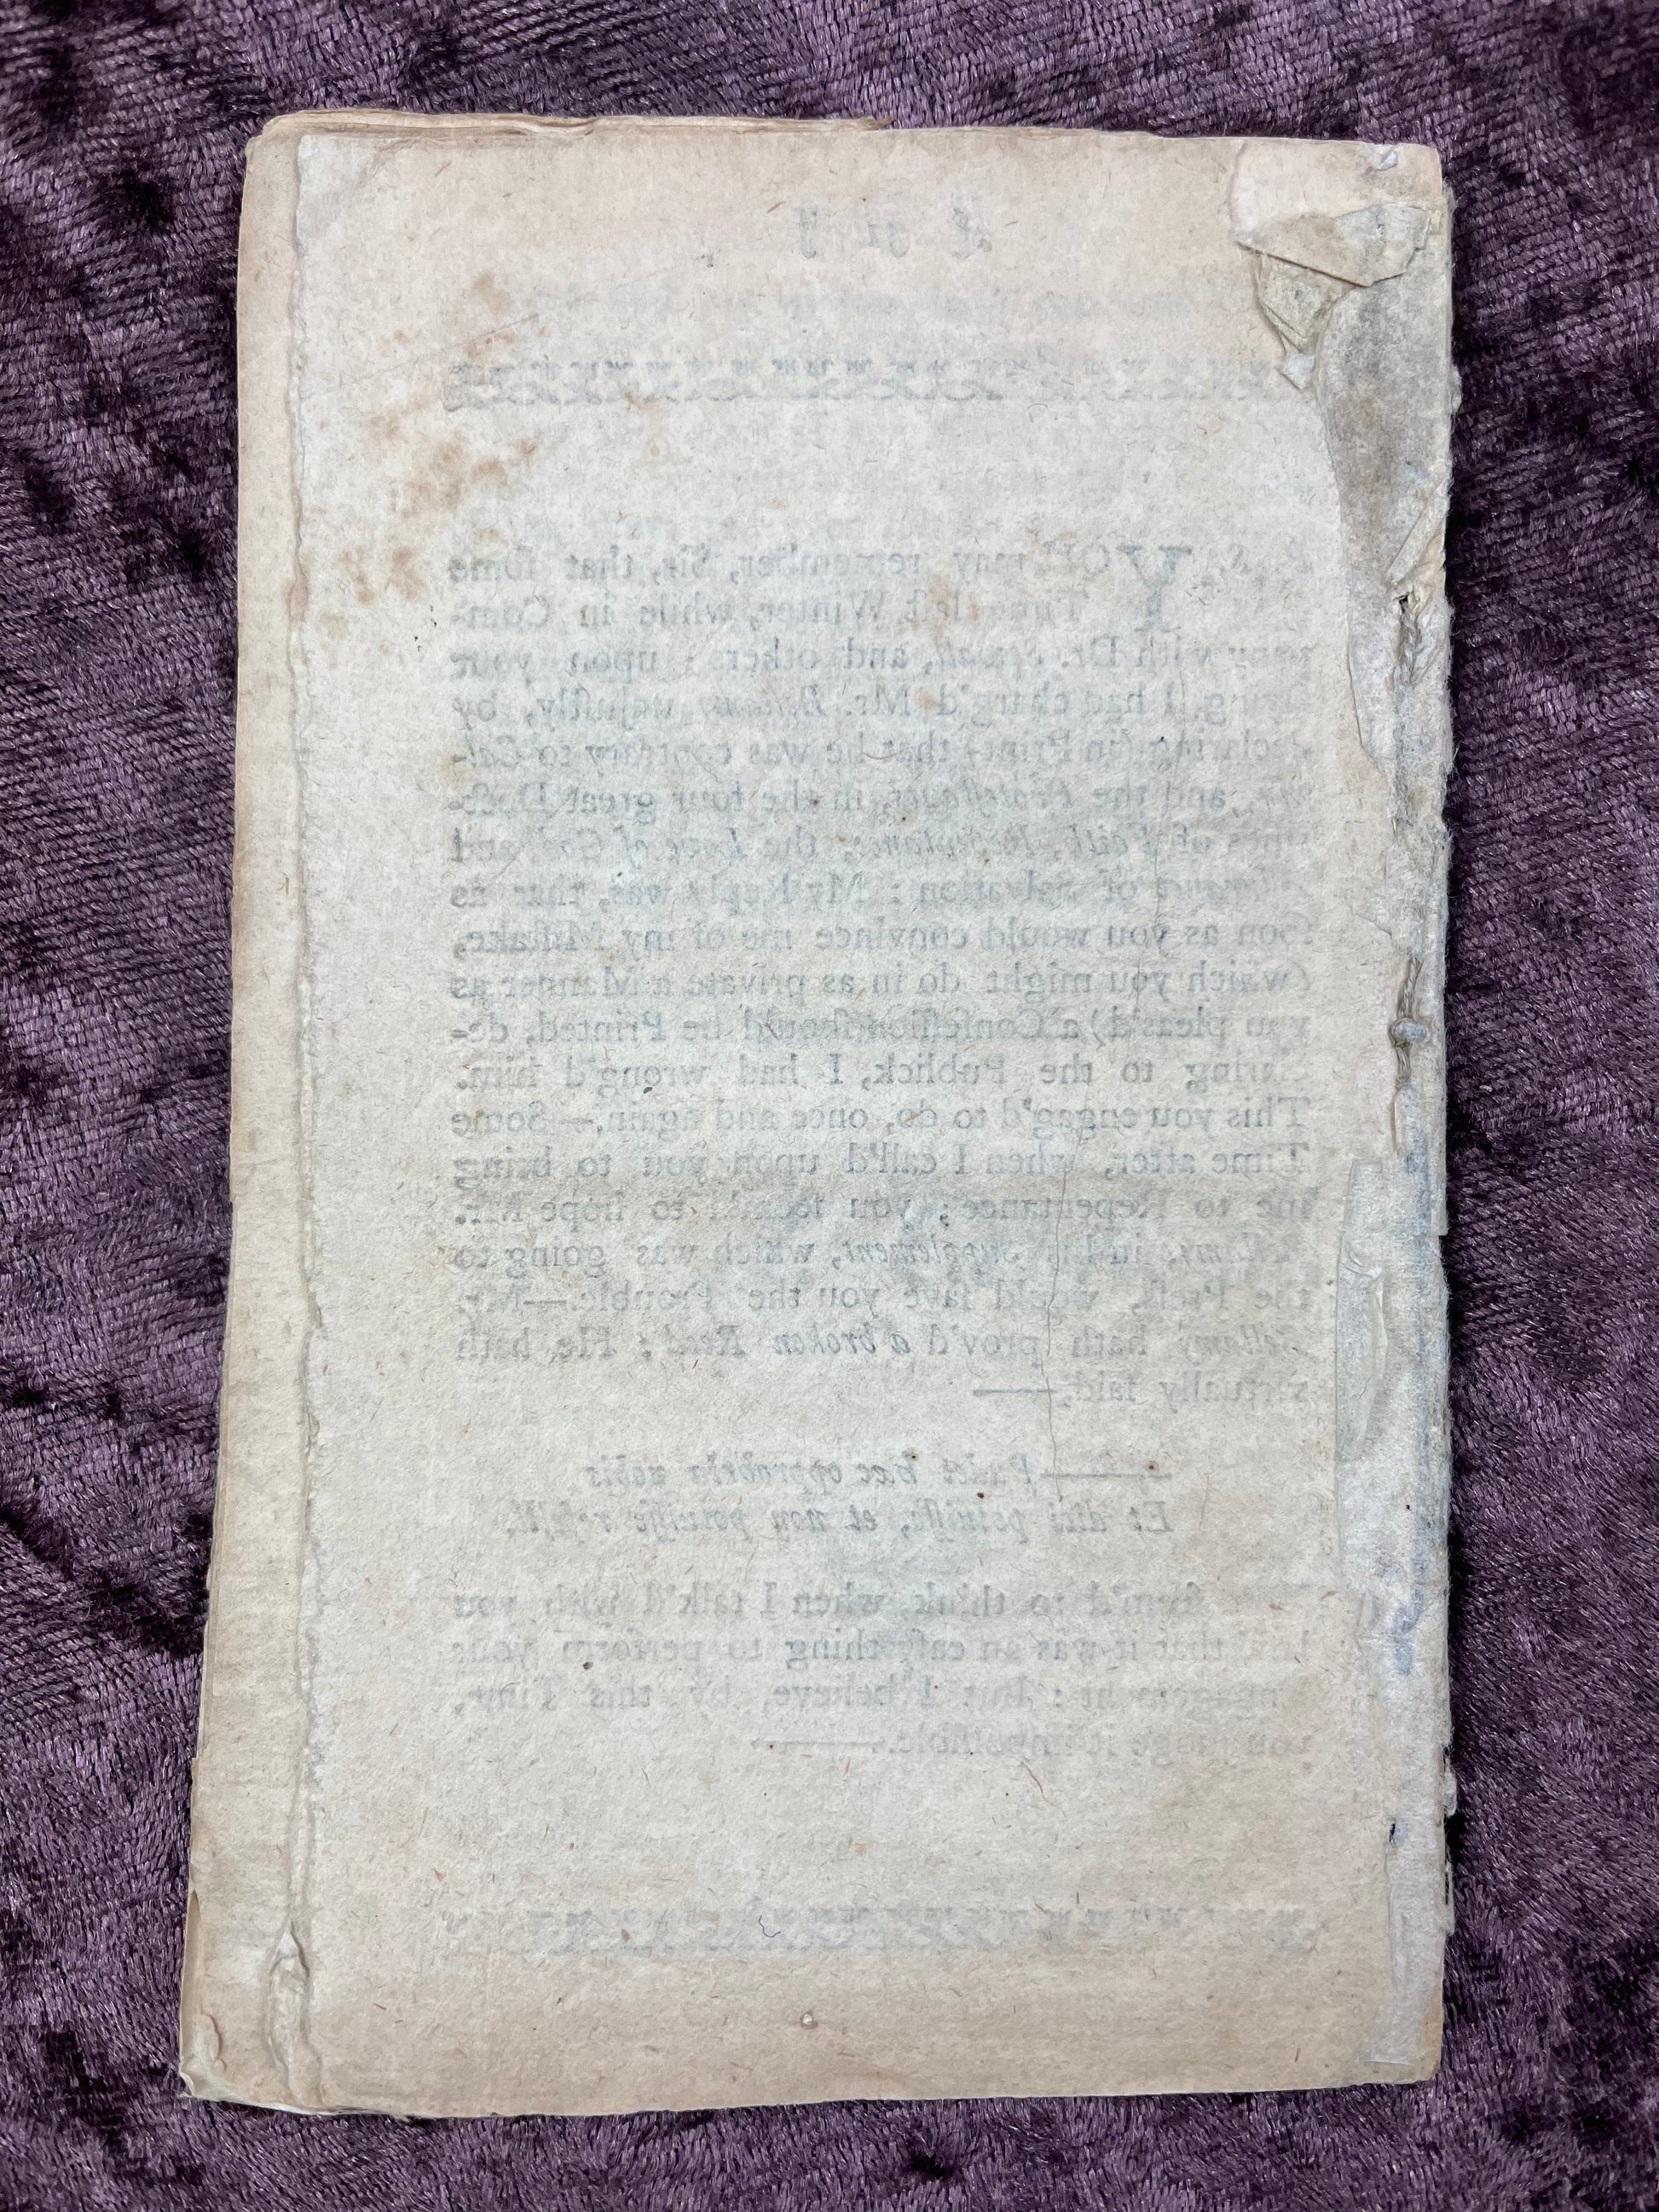 YOU may remember, Sir, that some
Time last Winter, while in Com-
pany with Dr. and others upon your
I had charg'd Mr. Bellamy unjustly, by
declaring (in Print) that he was contrary to Cal-
and the in the four great Doct-
of Faith, Repentance, the Love of God, and
of Salvation : My Reply was, that as
soon as you would convince me of my Mistake,
(which you might do in as private a Manner as
you pleas'd) a Confession should be Printed, de-
claring to the Publick, I had wrong'd him.
This you engag'd to do, once and again.—Some
Time after, when I call'd upon you to bring
me to Repentance; you seem'd to hope Mr.
Bellamy, in his Supplement, which was going to
the Press, would save you the Trouble.—Mr.
Bellamy hath prov'd a broken Reed ; He hath
virtually said,——
——Pudet hæc opprobria nobis
Et dici potuisse, et non potuisse refelli.
seem'd to think, when I talk'd with you
that it was an easy thing to perform your
Engagement : But I believe, by this Time,
you judge it impossible.——